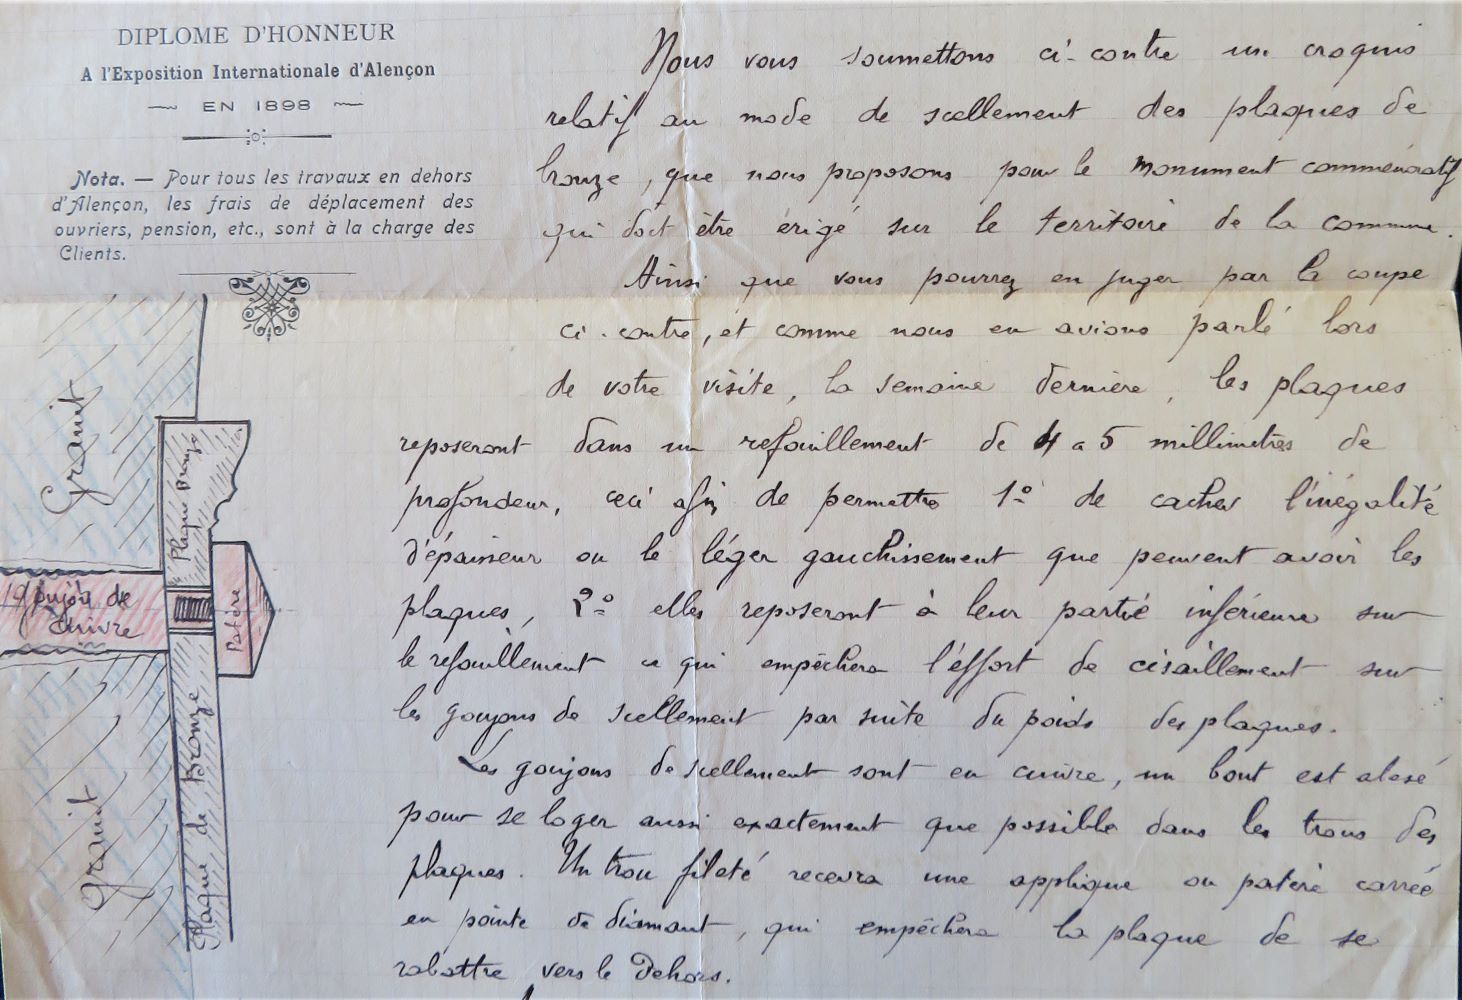 DIPLOME D'HONNEUR
A l'Exposition Internationale d'Alençon
EN 1898
Nota. — Pour tous les travaux en dehors
d'Alençon, les frais de déplacement des
ouvriers, pension, etc., sont à la charge des
Clients.
Nous vous soumettons ci-contre un croquis
relatif au mode de scellement des plaques de
bronze, que nous proposons pour le monument commémoratif
qui doit être érigé sur le territoire de la commune.
Ainsi que vous pourrez en juger par la coupe
ci-contre, et comme nous en avions parlé lors
de votre visite, la semaine dernière, les plaques
reposeront dans un refouillement de 4 a 5 millimètres de
profondeur, ceci afin de permettre 1º de cacher l'inégalité
d'épaisseur ou le léger gauchissement que peuvent avoir les
plaques, 2º elles reposeront à leur partie inférieure sur
le refouillement ce qui empêchera l'effort de cisaillement sur
les goujons de scellement par suite du poids des plaques.
Les goujons de scellement sont en cuivre, un bout est alesé
pour se loger aussi exactement que possible dans les trous des
plaques. Un trou fileté recevra une applique ou patère carrée
en pointe de diamant, qui empêchera la plaque de se
rabattre vers le dehors.
Granit
Plaque Bronze
goujon de
Cuivre
Patère
Plaque de Bronze
Granit